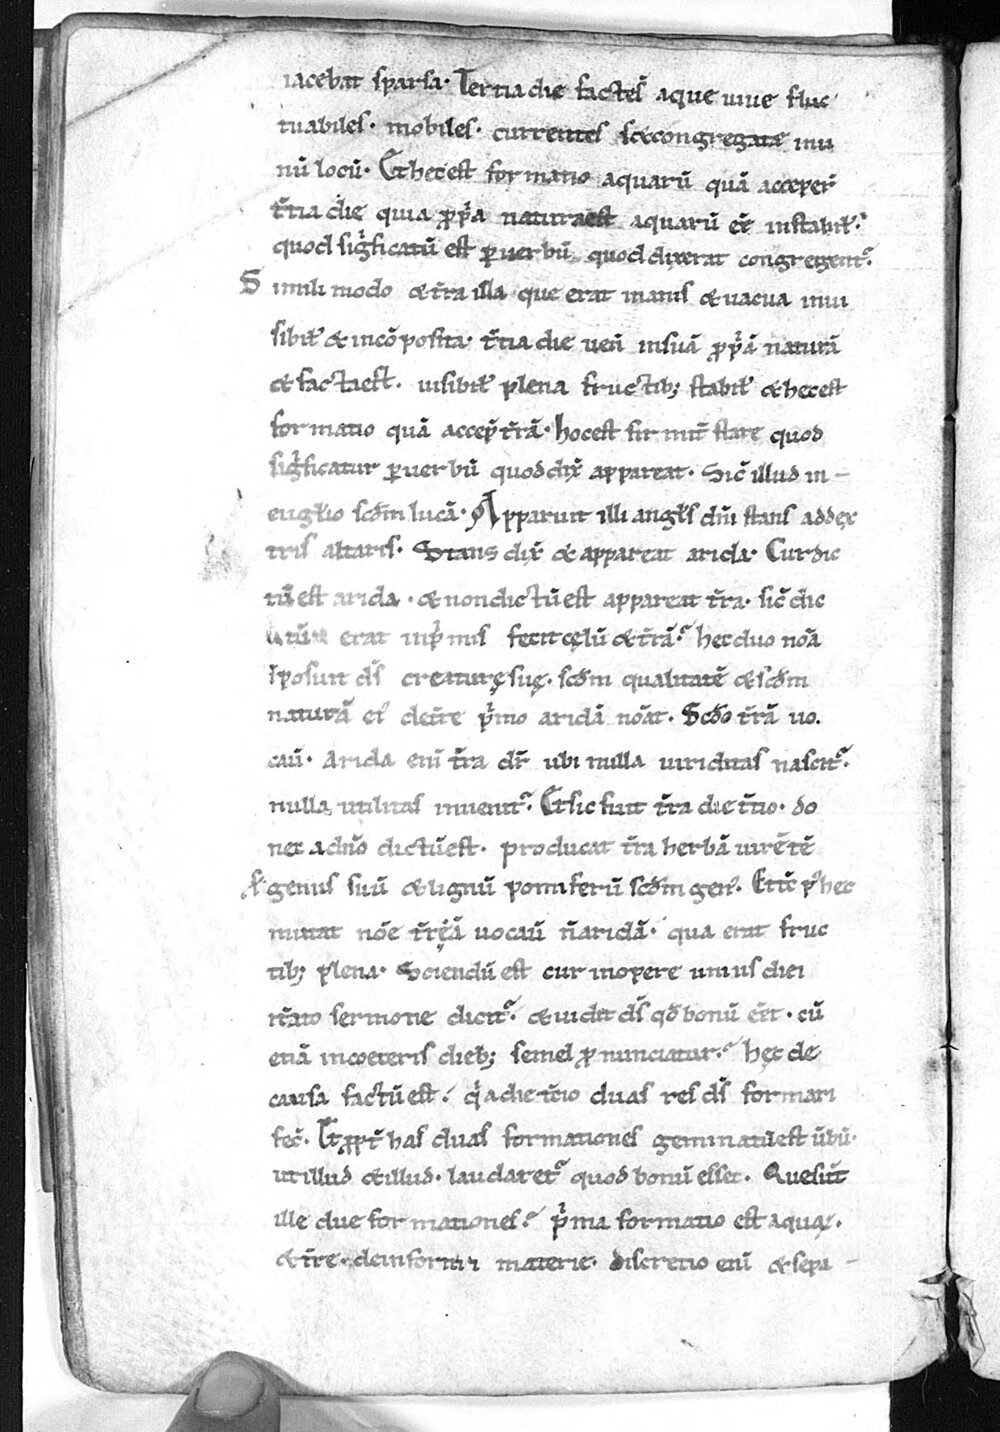 iacebat sparsa. Tertia die factę s̄ aque uiue fluc
tuabiles. mobiles. currentes s; & congregatae inu
nū locū. Et hec est formatio aquarū quā acceper̄
t̄tia die quia ꝓpⁱa natura est aquarū eē instabił.
quod sigⁱficatū est ꝑ uerbū quod dixerat congregent᷑.
Simili modo & t̄ra illa que erat inanis & uacua inui
sibił & incō posita. t̄tia die uen̄ insuā ꝓpⁱā naturā
& facta est. uisibił plena fructib; stabił & hec est
formatio quā accep̄ t̄rā. hoc est firmit̄ stare quod
sigⁱficatur ꝑ uerbū quod dix̄ appareat. Sic̄ illud in
eugł̄io scd̄m lucā. Apparuit illi angł̄s dn̄i stans addex
tris altaris. Stans dix̄ & appareat arida. Cur dic
tū est arida. & non dictū est appareat t̄ra. sic̄ dic
erat inpⁱmis fecit cęlū & t̄rā. hec duo nōa
īposuit ds̄ creaturę suę. scd̄m qualitatē & scd̄m
naturā ei᷒ de t̄re pⁱmo aridā nōat. Scd̄o t̄rā uo.
cau̅. Arida eni̅ t̄ra dr̄ ubi nulla uiriditas nascit᷑.
nulla utilitas inuenit᷑. Et sic fuit t̄ra die t̄tio. do
nec adn̄o dictū est. producat t̄ra herbā uirētē
genus suū & lignū pomiferū scd̄m gen᷒. Et tc̄ pꝰ hec
mutat nōe t̄rę̄ā uocau̅ n̄ aridā. qua erat fruc
tib; plena. Sciendū est cur in opere unius diei
it̄ato sermone dicit᷑. & uidit ds̄ qd̄ bonū eēt. cū
etiā incoeteris dieb; semel ꝓnunciatur. hęc de
causa factū est. qⁱa die t̄tio duas res ds̄ formari
fec̄. Et ꝓpt̄ has duas formationes geminatū est ūbū.
ut illud & illud. laudaret᷑ quod bonū esset. Que sūt
ille due formationes. pⁱma formatio est aquę.
& t̄re. de informi materie. discretio eni̅ & sepa